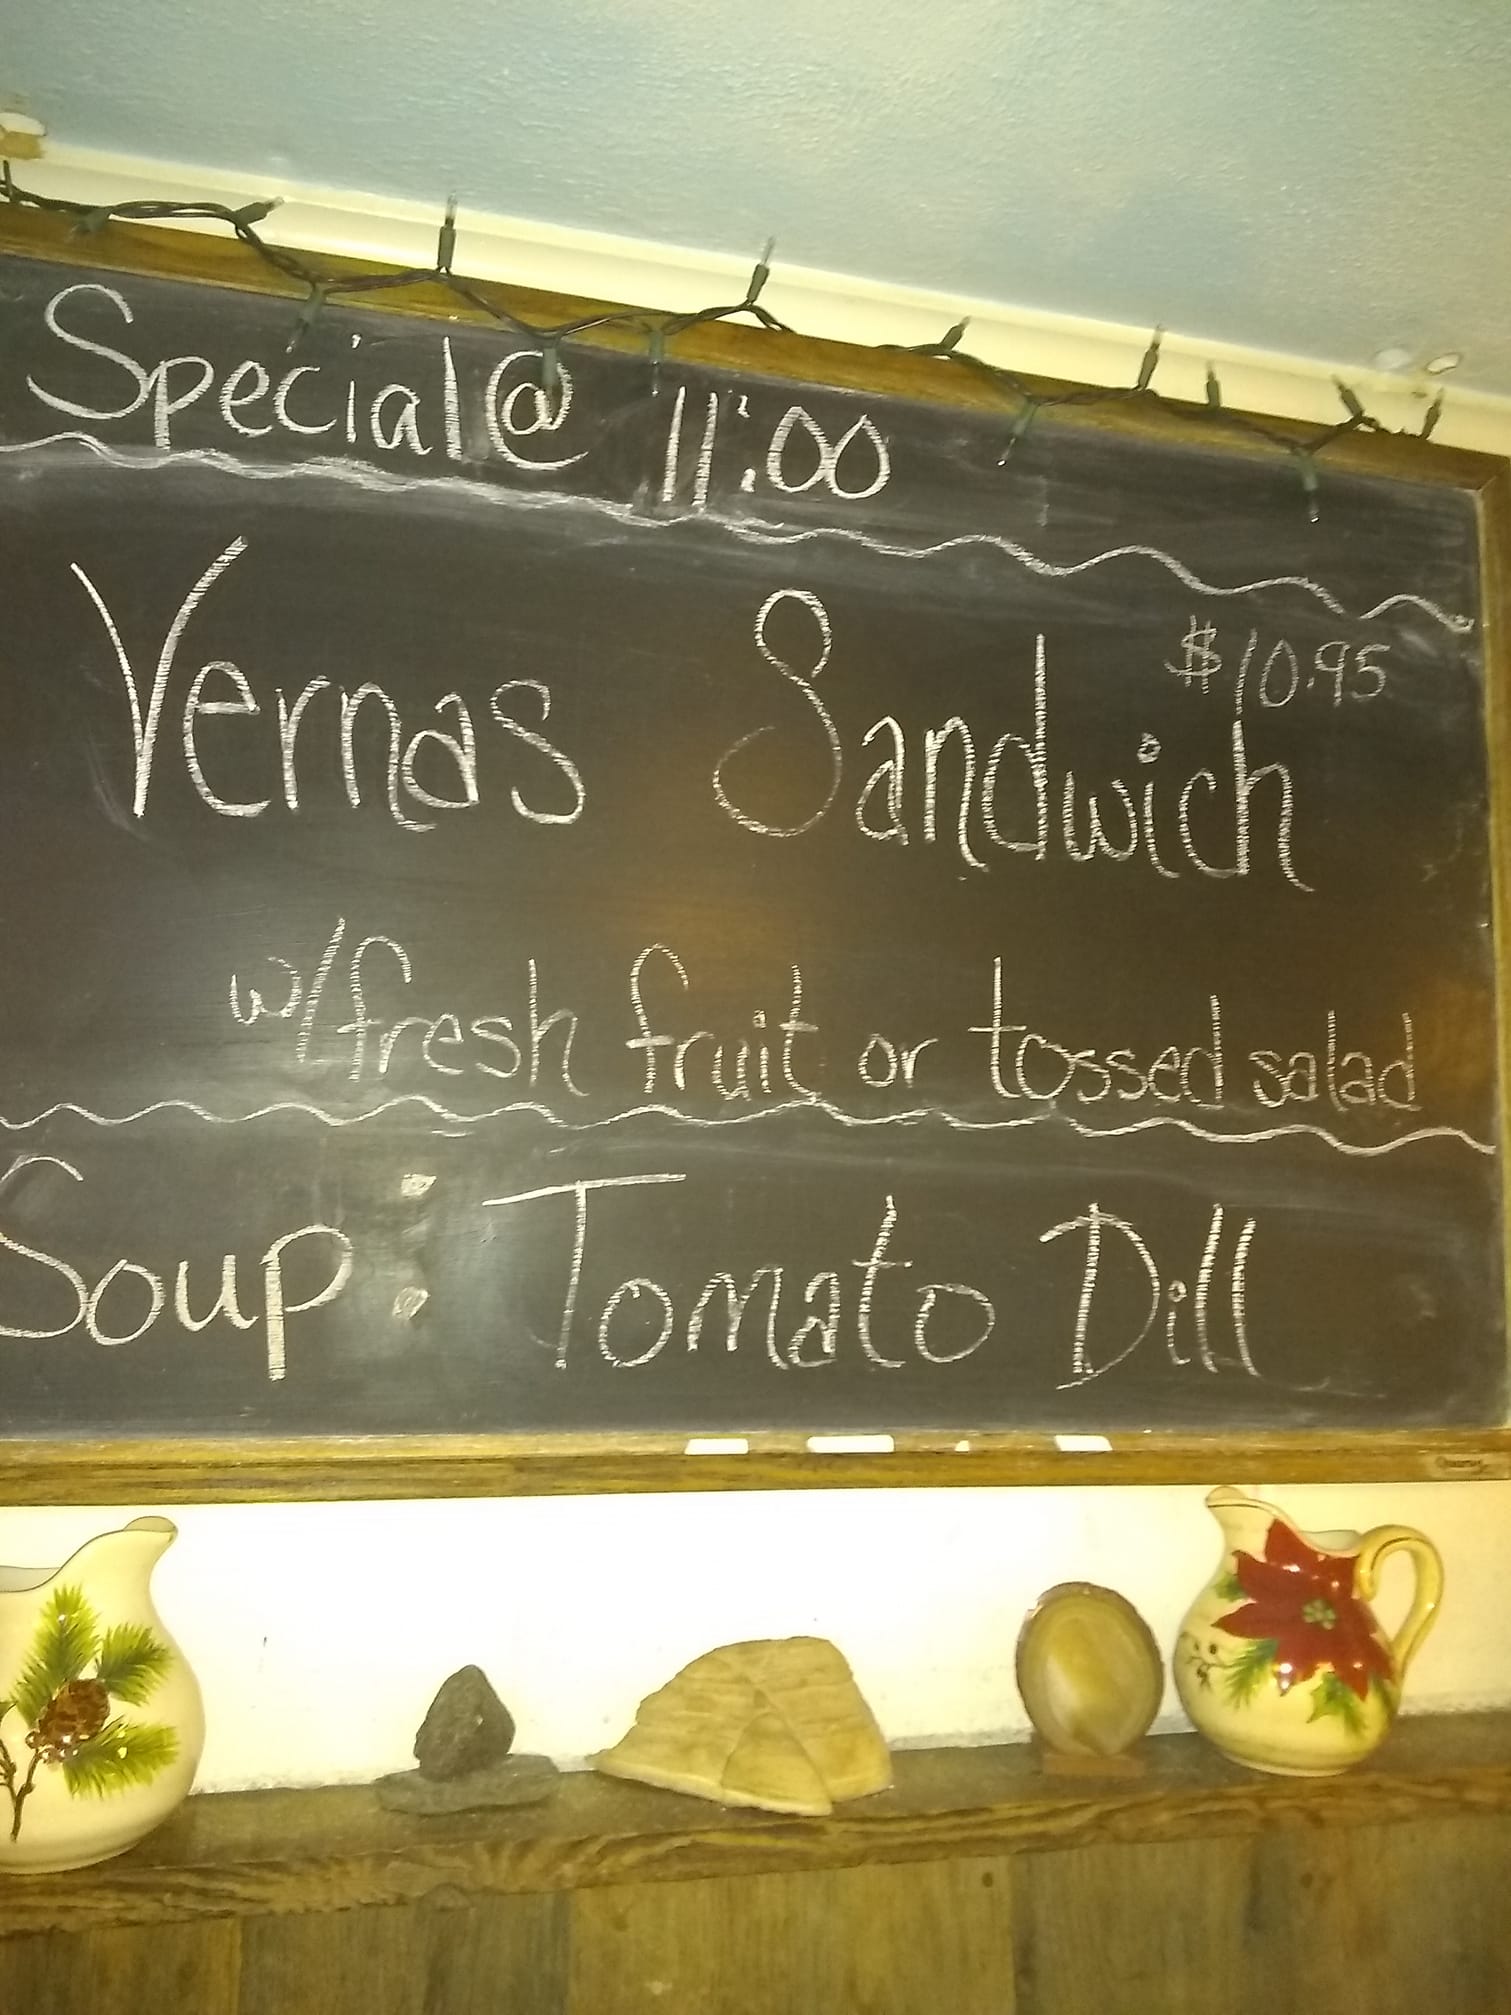 Special @ 11:00
$10.95
Vernas Sandwich
w/fresh fruit or tossed salad
Soup: Tomato Dill